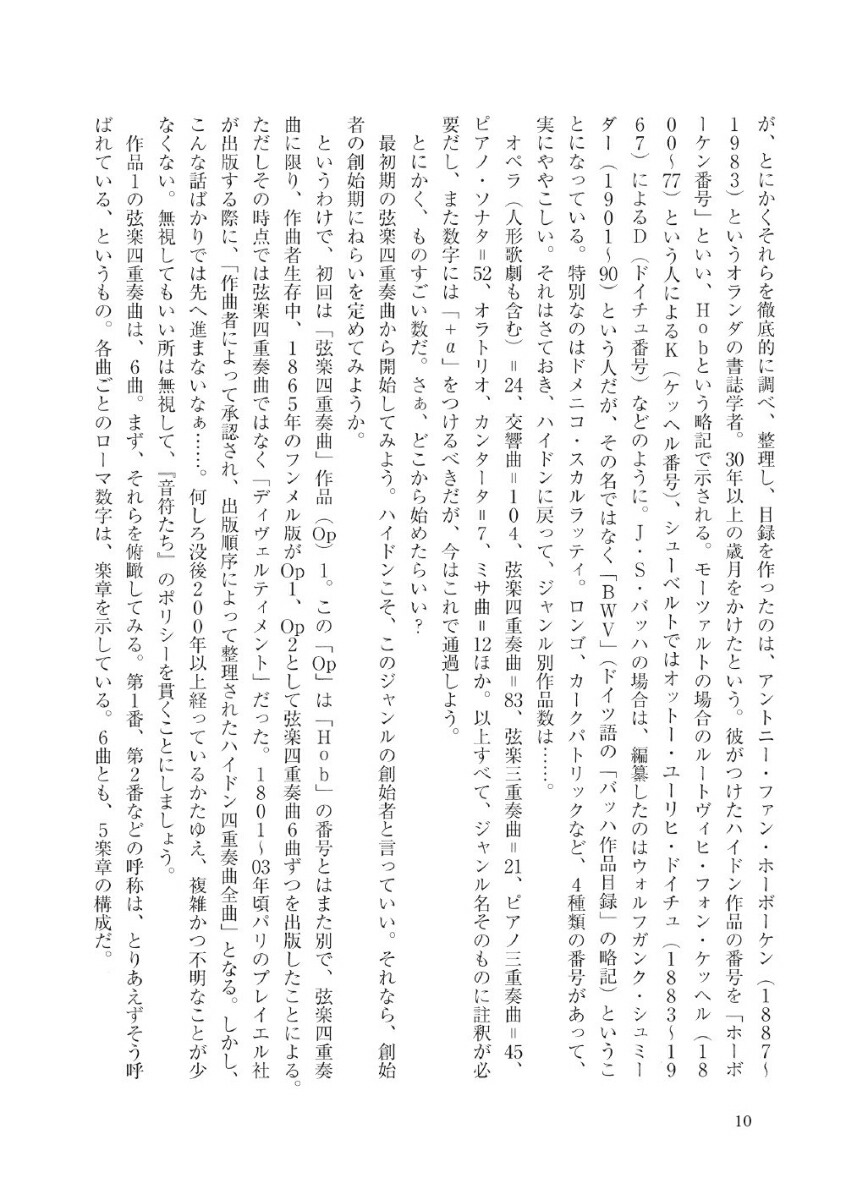 が、とにかくそれらを徹底的に調べ、整理し、目録を作ったのは、アントニー・ファン・ホーボーケン（1887〜
1983）というオランダの書誌学者。30年以上の歳月をかけたという。彼がつけたハイドン作品の番号を「ホーボ
ーケン番号」といい、Hobという略記で示される。モーツァルトの場合のルートヴィヒ・フォン・ケッヘル（18
00〜77）という人によるK（ケッヘル番号）、シューベルトではオットー・ユーリヒ・ドイチュ（1883〜19
67）によるD（ドイチュ番号）などのように。J・S・バッハの場合は、編纂したのはウォルフガンク・シュミー
ダー（1901〜90）という人だが、その名ではなく「BWV」（ドイツ語の「バッハ作品目録」の略記）というこ
とになっている。特別なのはドメニコ・スカルラッティ。ロンゴ、カークパトリックなど、4種類の番号があって、
実にややこしい。それはさておき、ハイドンに戻って、ジャンル別作品数は……。
オペラ（人形歌劇も含む）＝24、交響曲＝104、弦楽四重奏曲＝83、弦楽三重奏曲＝21、ピアノ三重奏曲＝45、
ピアノ・ソナタ＝52、オラトリオ、カンタータ＝7、ミサ曲＝12ほか。以上すべて、ジャンル名そのものに註釈が必
要だし、また数字には「＋α」をつけるべきだが、今はこれで通過しよう。
とにかく、ものすごい数だ。さぁ、どこから始めたらいい？
最初期の弦楽四重奏曲から開始してみよう。ハイドンこそ、このジャンルの創始者と言っていい。それなら、創始
者の創始期にねらいを定めてみようか。
というわけで、初回は「弦楽四重奏曲」作品（Op）1。この「Op」は「Hob」の番号とはまた別で、弦楽四重奏
曲に限り、作曲者生存中、1865年のフンメル版がOp1、Op2として弦楽四重奏曲6曲ずつを出版したことによる。
ただしその時点では弦楽四重奏曲ではなく「ディヴェルティメント」だった。1801〜03年頃パリのプレイエル社
が出版する際に、「作曲者によって承認され、出版順序によって整理されたハイドン四重奏曲全曲」となる。しかし、
こんな話ばかりでは先へ進まないなぁ……。何しろ没後200年以上経っているかたゆえ、複雑かつ不明なことが少
なくない。無視してもいい所は無視して、『音符たち』のポリシーを貫くことにしましょう。
作品1の弦楽四重奏曲は、6曲。まず、それらを俯瞰してみる。第1番、第2番などの呼称は、とりあえずそう呼
ばれている、というもの。各曲ごとのローマ数字は、楽章を示している。6曲とも、5楽章の構成だ。
10